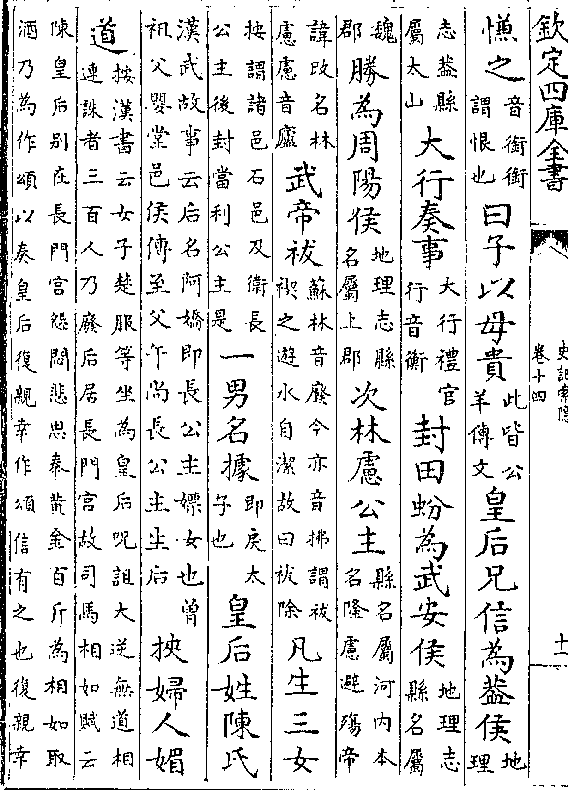 欽定四庫全書
史記索隱
卷十四
十一
慊之音銜銜謂恨也曰子以母貴此皆公羊傳文皇后兄信為葢侯地理
志葢縣屬太山大行奏事大行禮官行音衡封田蚡為武安侯地理志縣名屬
魏郡勝為周陽侯地理志縣名屬上郡次林慮公主縣名屬河内本名隆慮避殤帝
諱改名林慮慮音廬武帝祓蘇林音廢今亦音拂謂祓禊之遊水自潔故曰祓除凡生三女
按謂諸邑石邑及衛長公主後封當利公主是一男名據即戾太子也皇后姓陳氏
漢武故事云后名阿嬌即長公主嫖女也曾祖父嬰堂邑侯傳至父午尚長公主生后挾婦人媚
道按漢書云女子楚服等坐為皇后呪詛大逆無道相連誅者三百人乃廢后居長門宮故司馬相如賦云
陳皇后别在長門宫怨悶悲思奉黄金百斤為相如取酒乃為作頌以奏皇后復親幸作頌信有之也復親幸